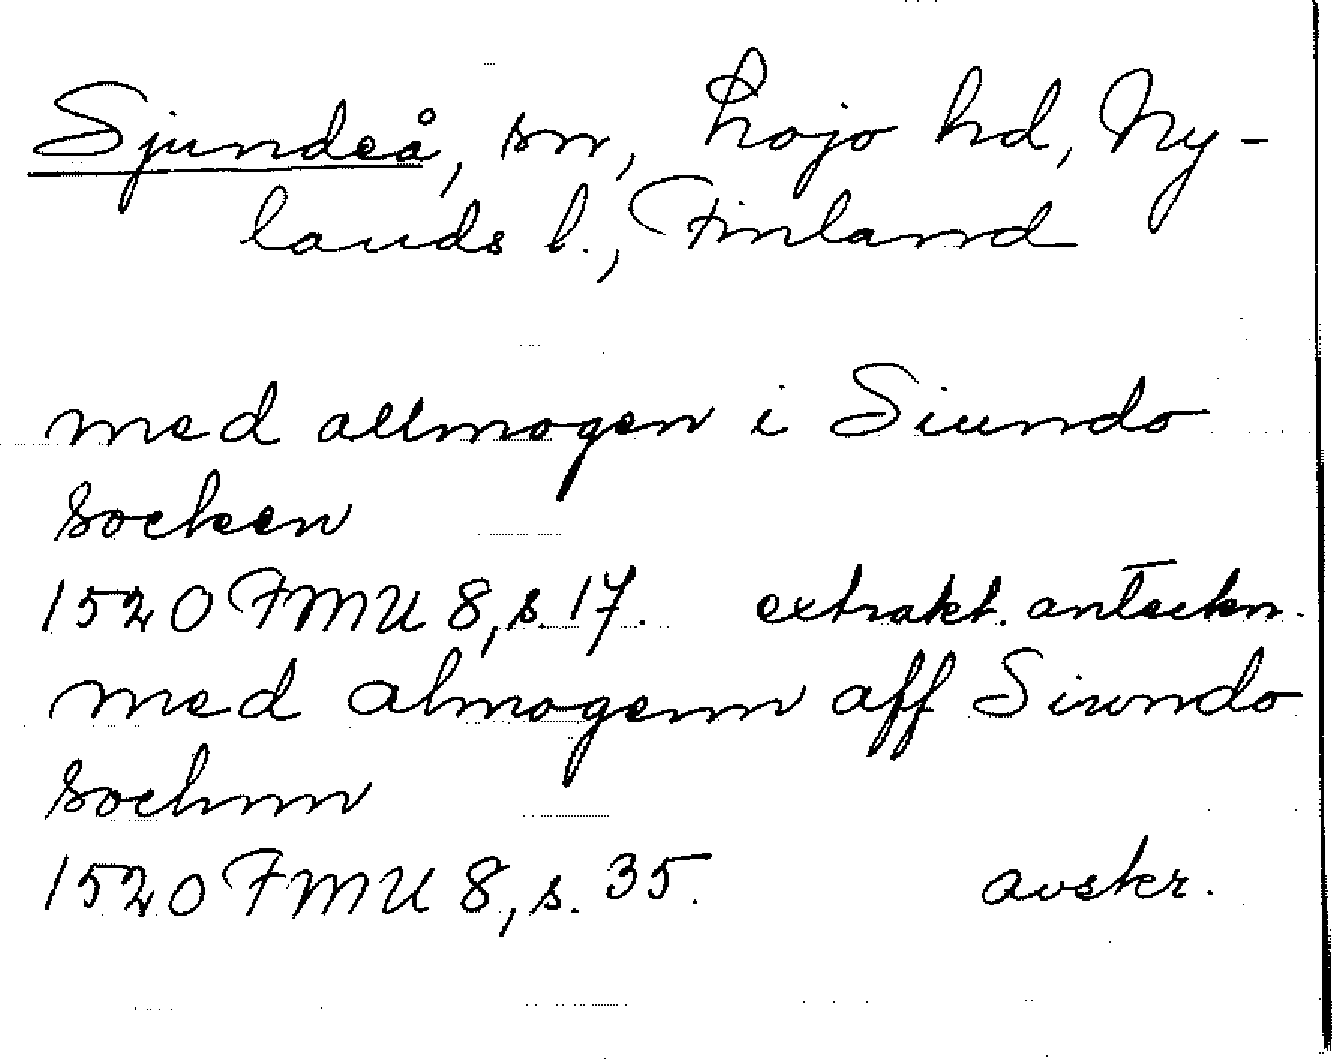 Sjundeå, sn, Lojo hd, Ny-
lands l., Finland
med allmogen i Siundo
socken
1520 FMU 8, s. 17. extrakt. anteckn.
med almogenn aff Siwndo
sochnn
1520 FMU 8, s. 35. avskr.